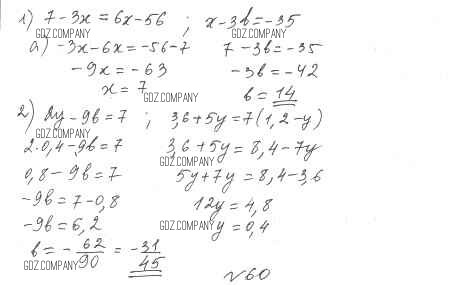 1) 7 - 3x = 6x - 56 ; x - 3b = -35
GDZ.COMPANY GDZ.COMPANY
а) -3x - 6x = -56 - 7 7 - 3b = -35
-9x = -63 -3b = -42
x = 7 b = 14
GDZ.COMPANY
2) 2y - 9b = 7 ; 3,6 + 5y = 7(1,2 - y)
GDZ.COMPANY
2·0,4 - 9b = 7 3,6 + 5y = 8,4 - 7y
GDZ.COMPANY
0,8 - 9b = 7 5y + 7y = 8,4 - 3,6
-9b = 7 - 0,8 12y = 4,8
-9b = 6,2 GDZ.COMPANY y = 0,4
b = - 62/90 = - 31/45
GDZ.COMPANY
~60